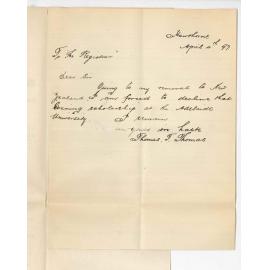 April 4th 97
To The Registrar
Dear Sir
Owing to my removal to New
Zealand I am forced to decline that
Evening scholarship at the Adelaide
University I remain
yours
Thomas. T. Thomas